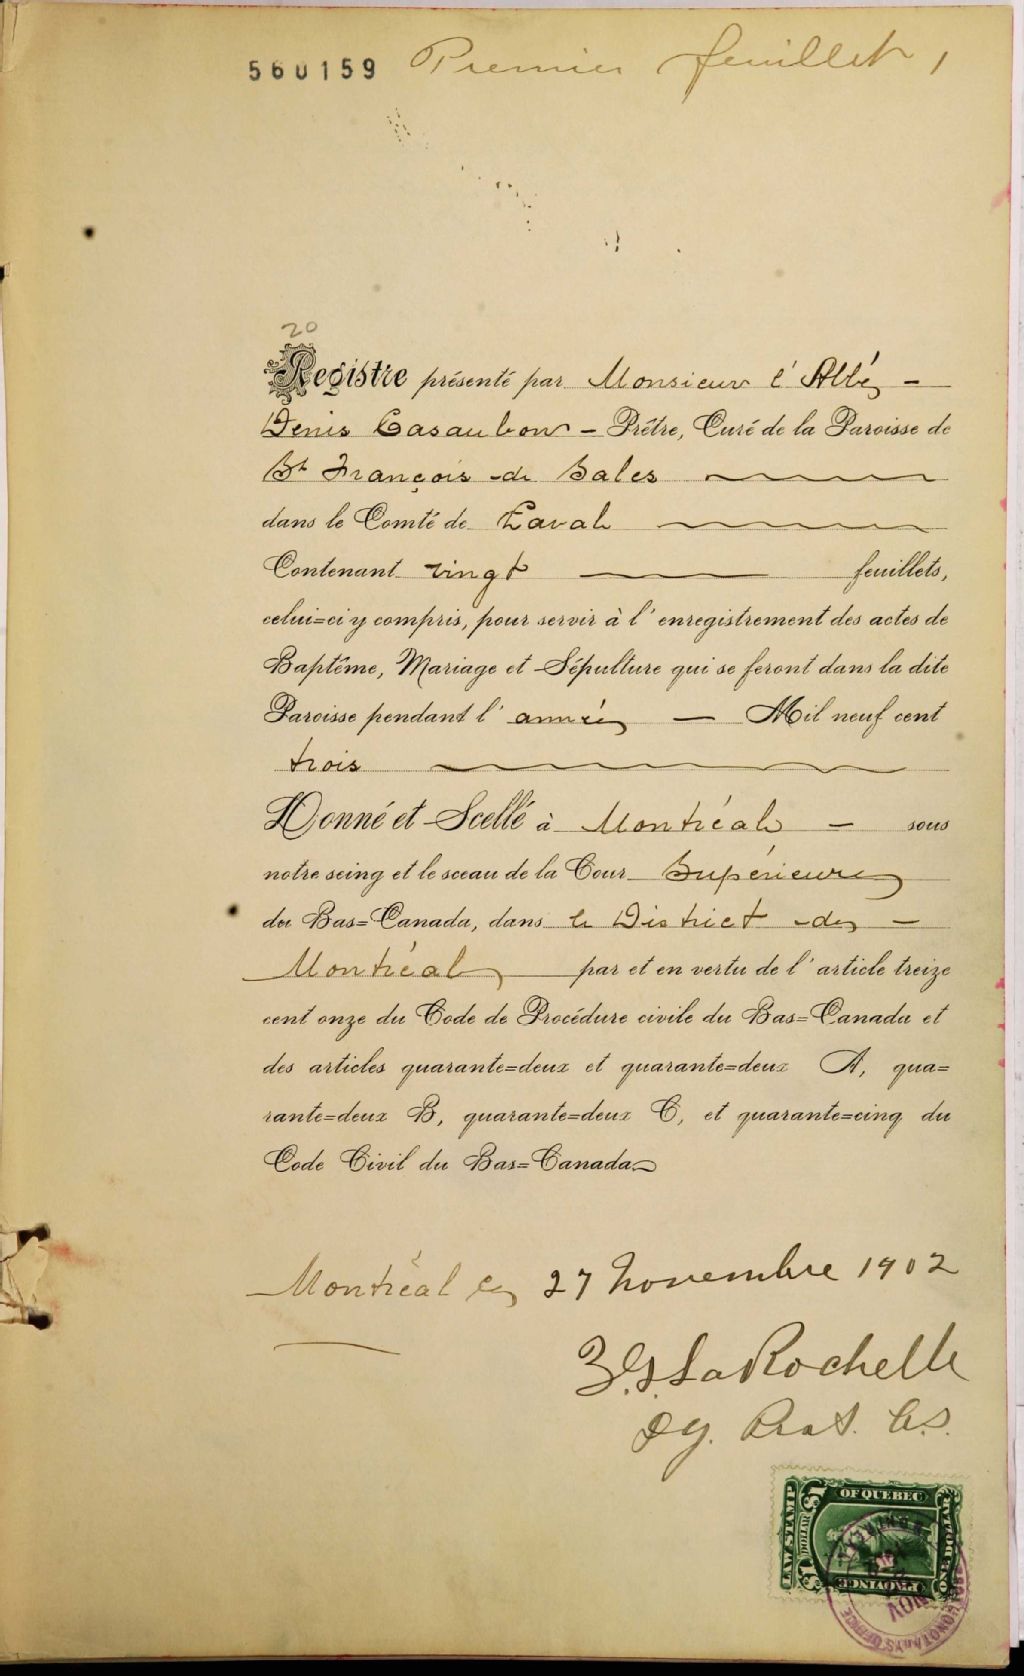 560159 Premier feuillet,
20
Registre présenté par Monsieur l'Abbé –
Denis Casaubon – Prêtre, Curé de la Paroisse de
St François de Sales
dans le Comté de Laval
Contenant vingt — feuillets,
celui=ci y compris, pour servir à l'enregistrement des actes de
Baptême, Mariage et Sépulture qui se feront dans la dite
Paroisse pendant l'année — Mil neuf cent
trois
Donné et Scellé à Montréal – sous
notre seing et le sceau de la Cour Supérieure
du Bas=Canada, dans le District de –
Montréal par et en vertu de l'article treize
cent onze du Code de Procédure civile du Bas=Canada et
des articles quarante=deux et quarante=deux A, qua=
rante=deux B, quarante=deux C, et quarante=cinq du
Code Civil du Bas=Canada
Montréal le 27 Novembre 1902
LaRochelle
Dy. Prot. C.S.
OF QUEBEC
LAW STAMP
$1
DOLLAR
ONE DOLLAR
PROVINCE
MONTREAL
NOV
PROTHONOTARYS OFFICE